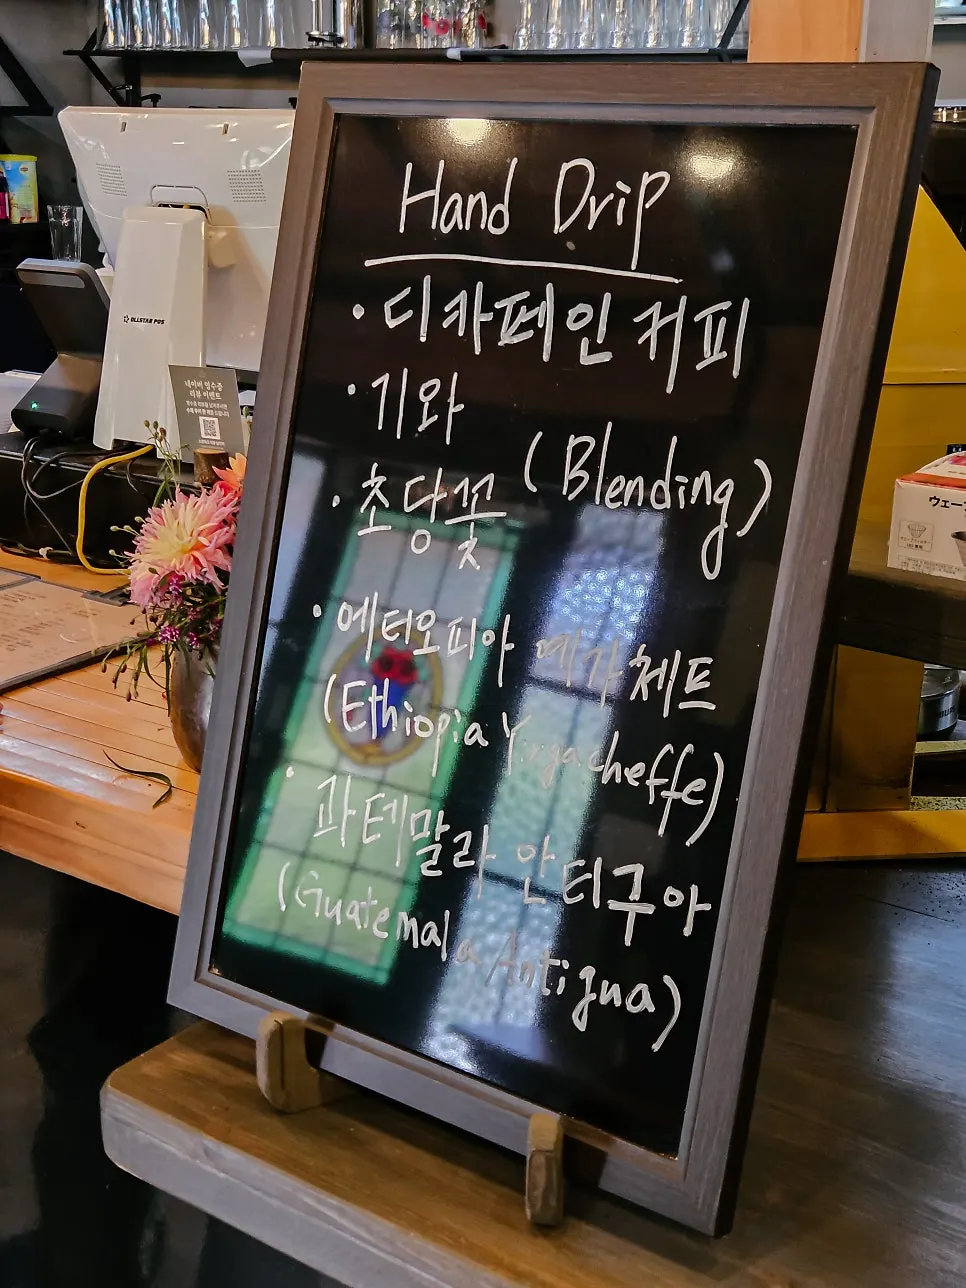 Hand Drip
· 디카페인 커피
· 기와
· 초당꽃 (Blending)
· 에티오피아 예가체트
(Ethiopia Yirgacheffe)
· 과테말라 안티구아
(Guatemala Antigua)
OLLSTAR POS
네이버 영수증
리뷰 이벤트
ウェーブ